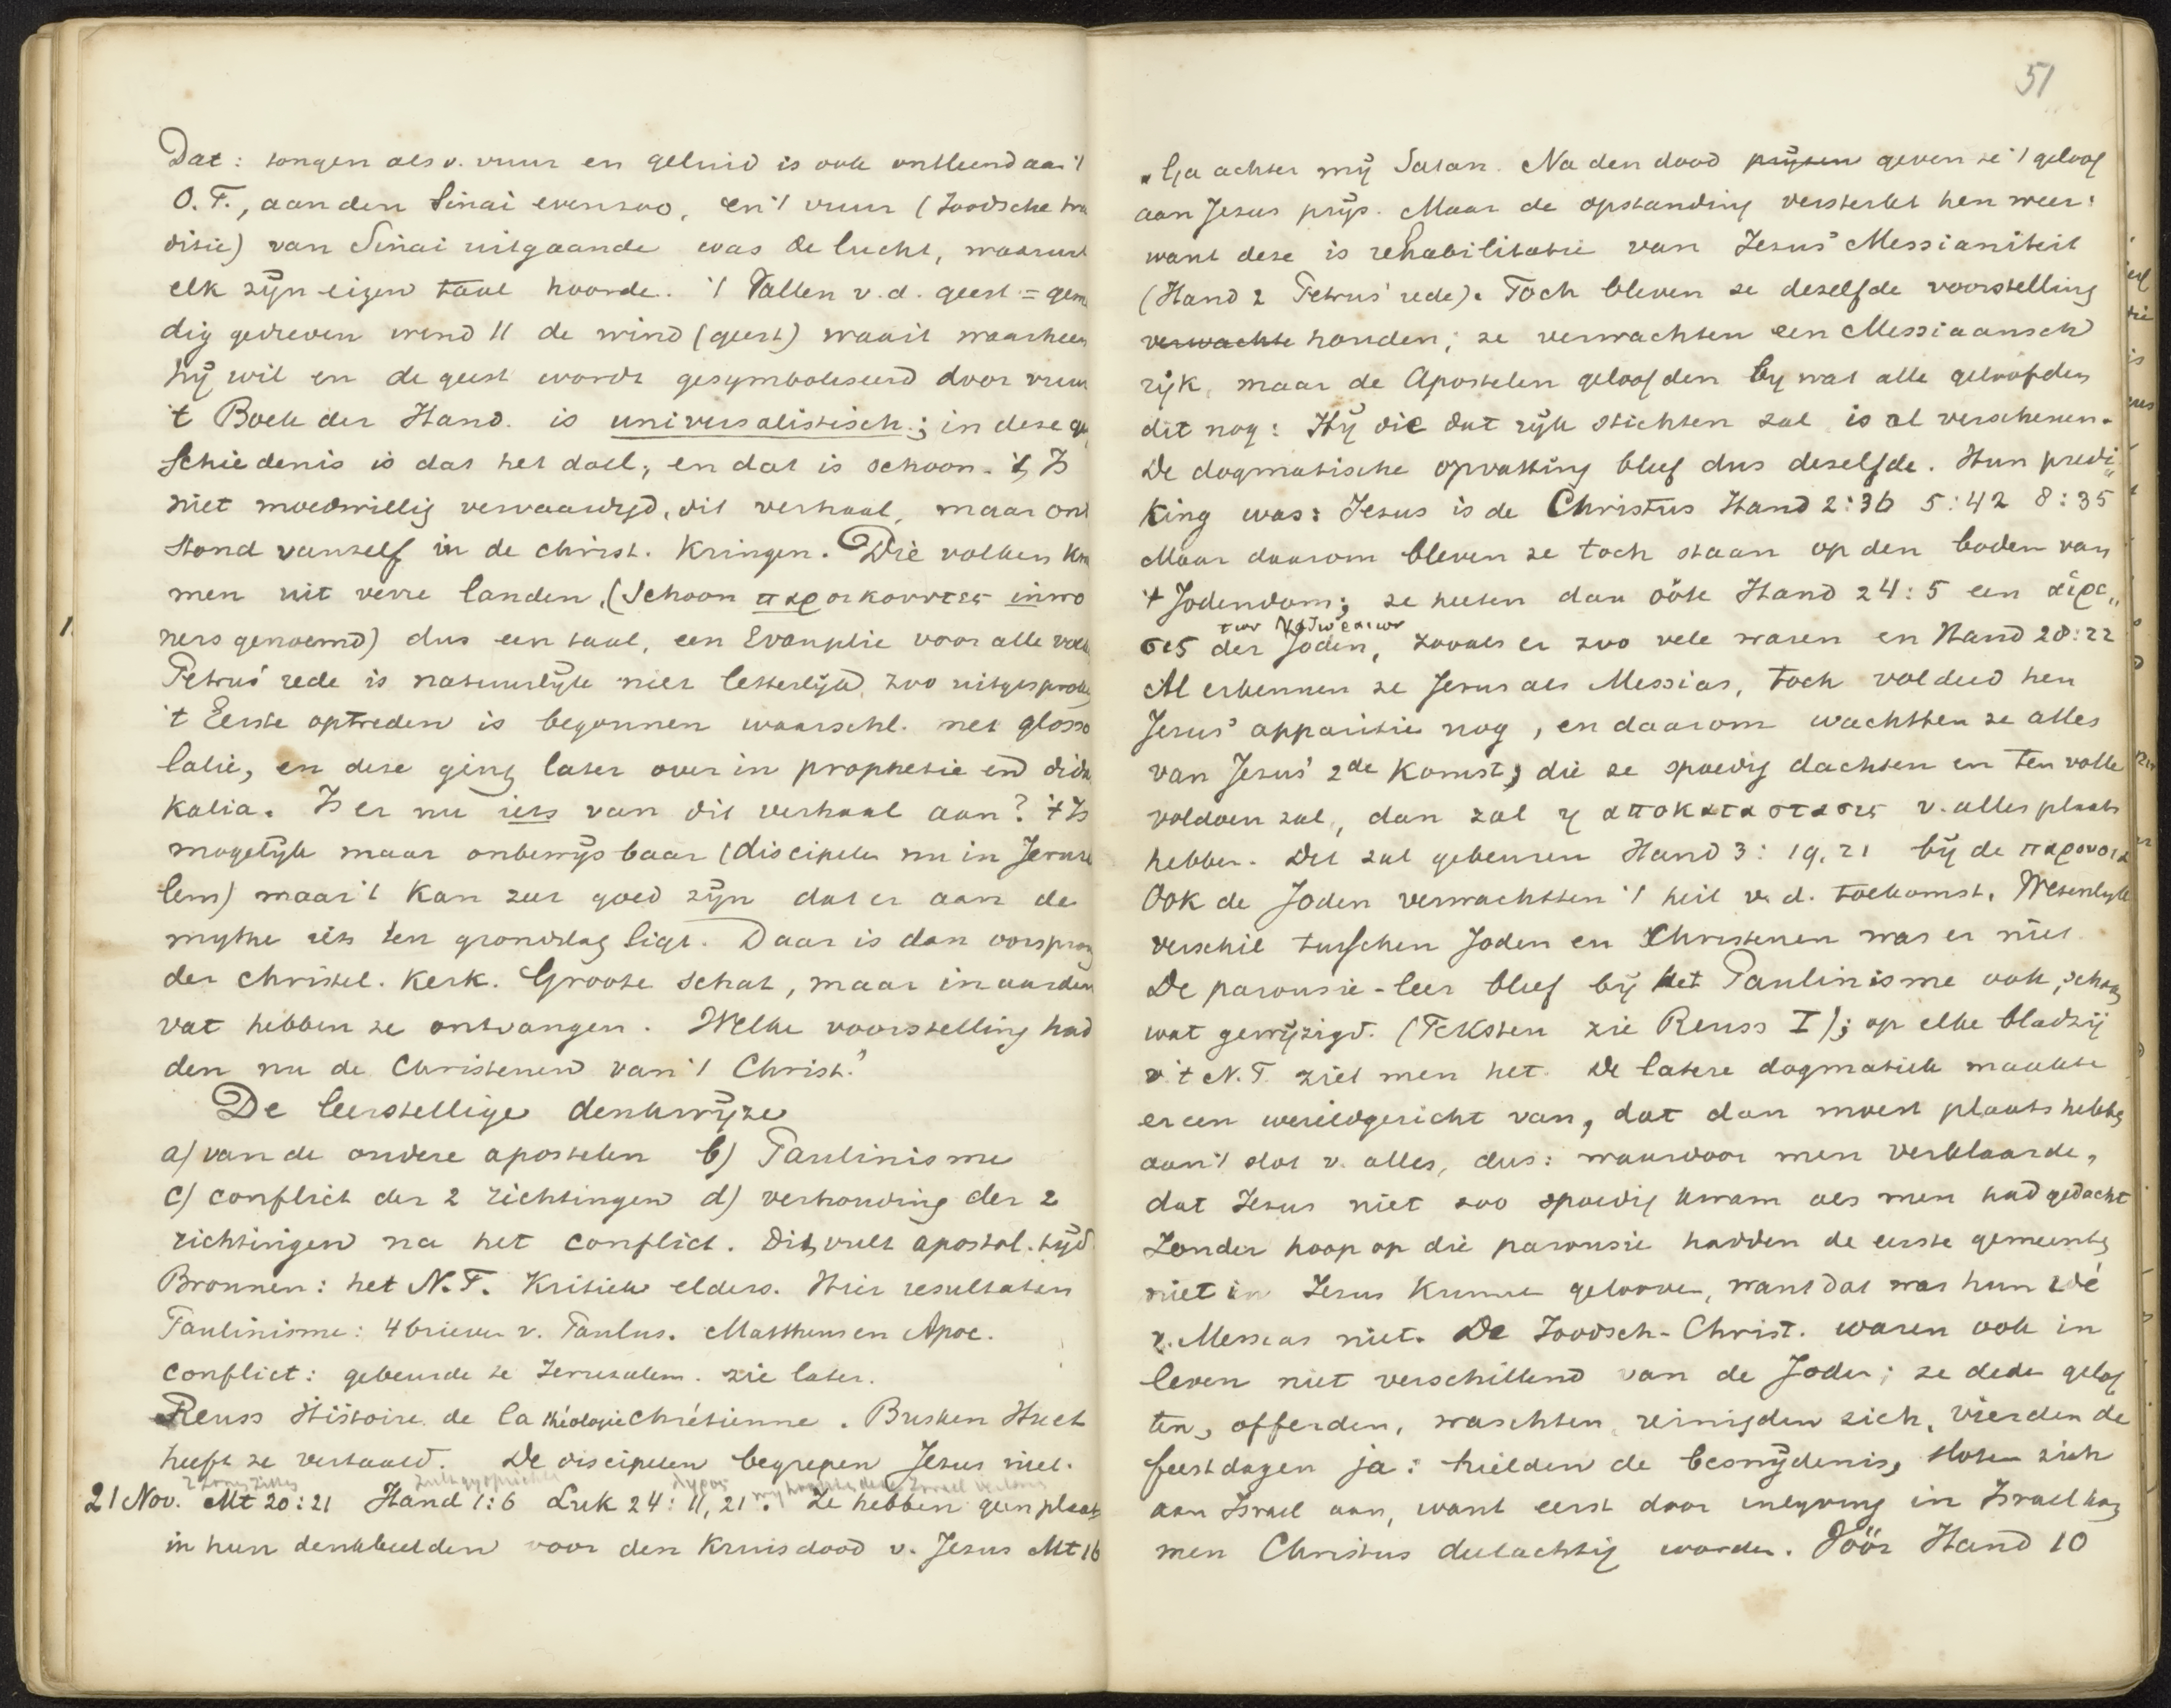 Dat: tongen als v. vuur en geluid is ook ontleend aan 't
O.T., aan den Sinai evenzoo, en 't vuur (Joodsche tra
ditie) van Sinai uitgaande was de lucht, waaruit
elk zijn eigen taal hoorde. 't Vallen v.d. geest = gewel
dig gedreven wind || de wind (geest) waait waarheen
hij wil en de geest wordt gesymboliseerd door vuur
't Boek der Hand. is universalistisch; in deze ge
schiedenis is dat het doel; en dat is schoon. 't Is
niet moedwillig vervaardigd, dit verhaal, maar ont
stond vanzelf in de christ. Kringen. Die volken ko
men uit verre landen, (schoon παροικουντες inwo
ners genoemd) dus een taal, een Evangelie voor alle volk
Petrus' rede is natuurlijk niet letterlijk zoo uitgesproken
't Eerste optreden is begonnen waarschl. met glosso
lalie, en deze ging later over in prophetie en didas
kalia. Is er nu iets van dit verhaal aan? 't Is
mogelijk maar onbewijsbaar (discipelen nu in Jeruza
lem) maar 't kan zeer goed zijn dat er aan de
mythe iets ten grondslag ligt. Daar is dan oorsprong
der christel. Kerk. Groote schat, maar in aarden
vat hebben ze ontvangen. Welke voorstelling had
den nu de Christenen van 't Christ.?
De leerstellige denkwijze
a) van de oudere apostelen b) Paulinisme
c) conflict der 2 richtingen d) verhouding der 2
richtingen na het conflict. Dit vult apostol. tijd.
Bronnen: het N.T. Kritiek elders. Hier resultaten
Paulinisme: 4 brieven v. Paulus. Mattheus en Apoc.
conflict: gebeurde te Jeruzalem. zie later.
Reuss Histoire de la théologie Chrétienne. Busken Huet
heeft ze vertaald. De discipelen begrepen Jezus niet.
21 Nov. Mt 20:21 Hand 1:6 Luk 24:11, 21. Ze hebben geen plaats
in hun denkbeelden voor den Kruisdood v. Jezus Mt 16
51
"Ga achter mij Satan. Na den dood prijsen geven ze 't geloof
aan Jezus prijs. Maar de opstanding versterkt hen weer:
want deze is rehabilitatie van Jezus' Messianiteit
(Hand 2 Petrus' rede). Toch bleven ze dezelfde voorstelling
verwachte houden; ze verwachten een Messiaansch
rijk, maar de Apostelen geloofden bij wat alle geloofden
dit nog: Hij die dat rijk stichten zal is al verschenen.
De dogmatische opvatting bleef dus dezelfde. Hun predi
king was: Jezus is de Christus Hand 2:36 5:42 8:35
Maar daarom bleven ze toch staan op den bodem van
't Jodendom; ze heeten dan ook Hand 24:5 een αἱρε„
των Ναζωραιων
σις der Joden, zooals er zoo vele waren en Hand 28:22
Al erkennen ze Jezus als Messias, toch voldeed hen
Jezus' apparitie nog, en daarom wachtten ze alles
van Jezus' 2de Komst; die ze spoedig dachten en ten volle
voldoen zal, dan zal η αποκαταστασις v. alles plaats
hebben. Dit zal gebeuren Hand 3: 19, 21 bij de παρουσια
Ook de Joden verwachtten 't heil v. d. toekomst. Wezenlijk
verschil tusschen Joden en Christenen was er niet
De parousie-leer bleef bij het Paulinisme ook, schoon
wat gewijzigd. (Teksten zie Reuss I); op elke bladzij
v 't N.T. ziet men het. De latere dogmatiek maakte
er een wereldgericht van, dat dan moest plaats hebben
aan 't slot v. alles, dus: waardoor men verklaarde,
dat Jezus niet zoo spoedig kwam als men had gedacht
Zonder hoop op die parousie hadden de eerste gemeenten
niet in Jezus kunnen gelooven, want dat was hun idé
v. Messias niet. De Joodsch-Christ. waren ook in
leven niet verschillend van de Joden; ze deden gelof
ten, offerden, waschten, reinigden zich, vierden de
feestdagen ja: hielden de besnijdenis, sloten zich
aan Israel aan, want eerst door inlijving in Israel kon
men Christus deelachtig worden. Vóór Hand 10